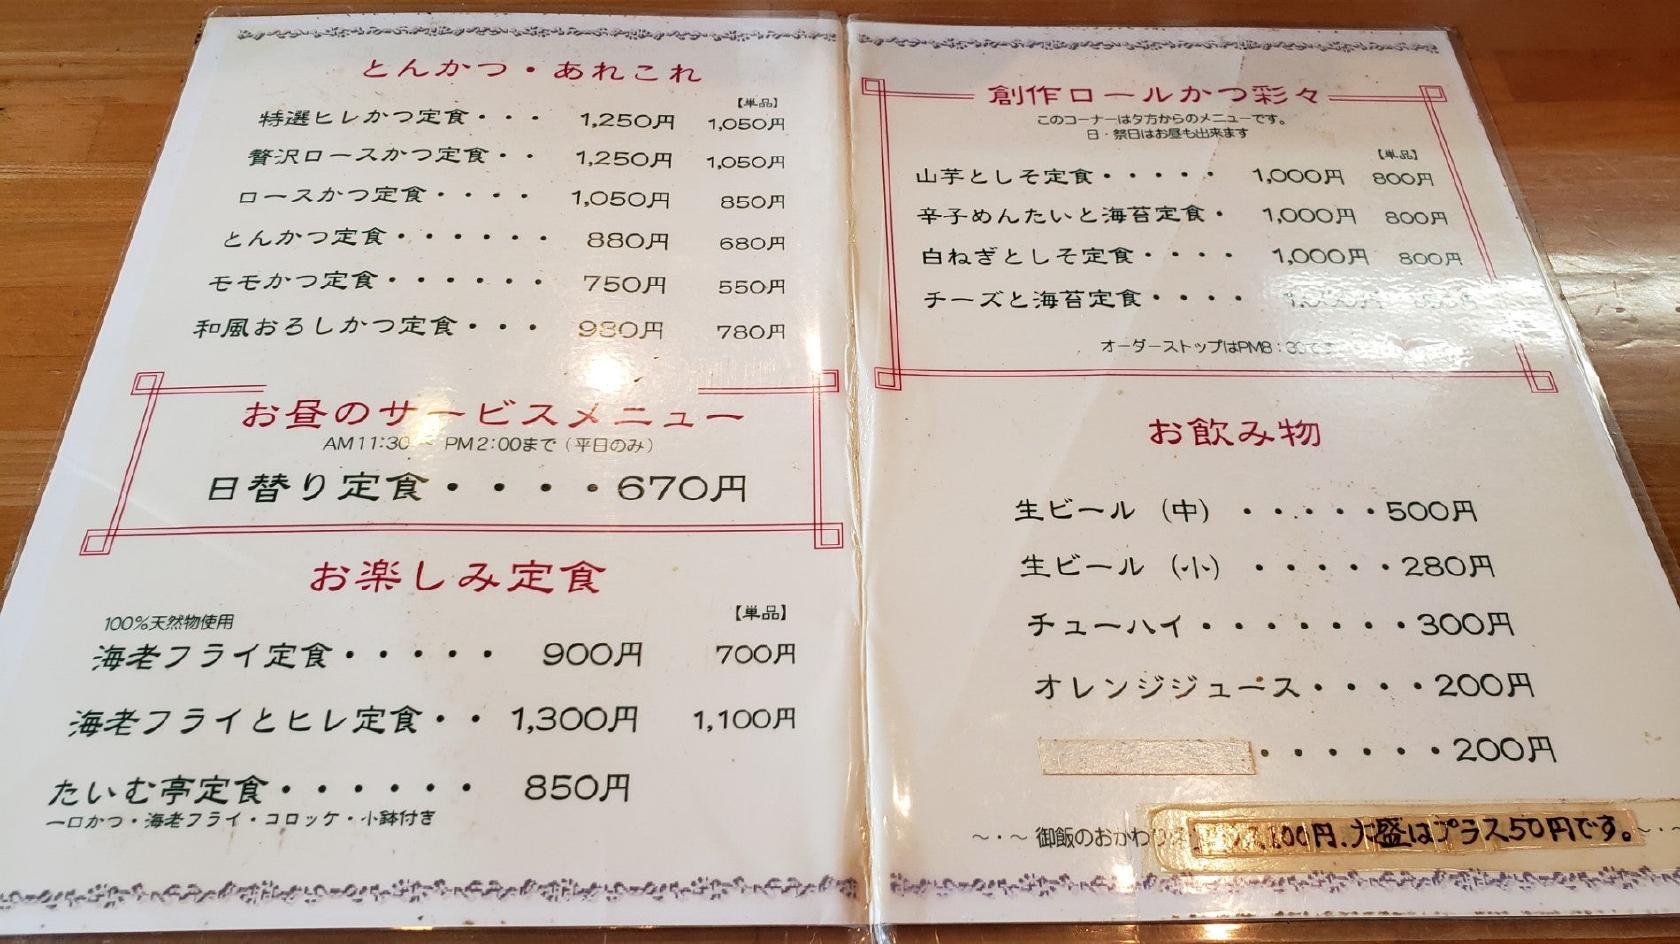 とんかつ・あれこれ
【単品】
特選ヒレかつ定食・・・ 1,250円 1,050円
贅沢ロースかつ定食・・ 1,250円 1,050円
ロースかつ定食・・・・ 1,050円 850円
とんかつ定食・・・・・・ 880円 680円
モモかつ定食・・・・・・ 750円 550円
和風おろしかつ定食・・・ 980円 780円
お昼のサービスメニュー
AM11:30 ～ PM2:00まで（平日のみ）
日替り定食・・・・670円
お楽しみ定食
【単品】
100%天然物使用
海老フライ定食・・・・・ 900円 700円
海老フライとヒレ定食・・ 1,300円 1,100円
たいむ亭定食・・・・・・ 850円
一口かつ・海老フライ・コロッケ・小鉢付き
創作ロールかつ彩々
このコーナーは夕方からのメニューです。
日・祭日はお昼も出来ます
【単品】
山芋としそ定食・・・・・ 1,000円 800円
辛子めんたいと海苔定食・ 1,000円 800円
白ねぎとしそ定食・・・・ 1,000円 800円
チーズと海苔定食・・・・
オーダーストップはPM8:30です
お飲み物
生ビール（中）・・・・・500円
生ビール（小）・・・・・280円
チューハイ・・・・・・・300円
オレンジジュース・・・・200円
・・・・・・200円
～・～ 御飯のおかわりは 100円、大盛はプラス50円です。～・